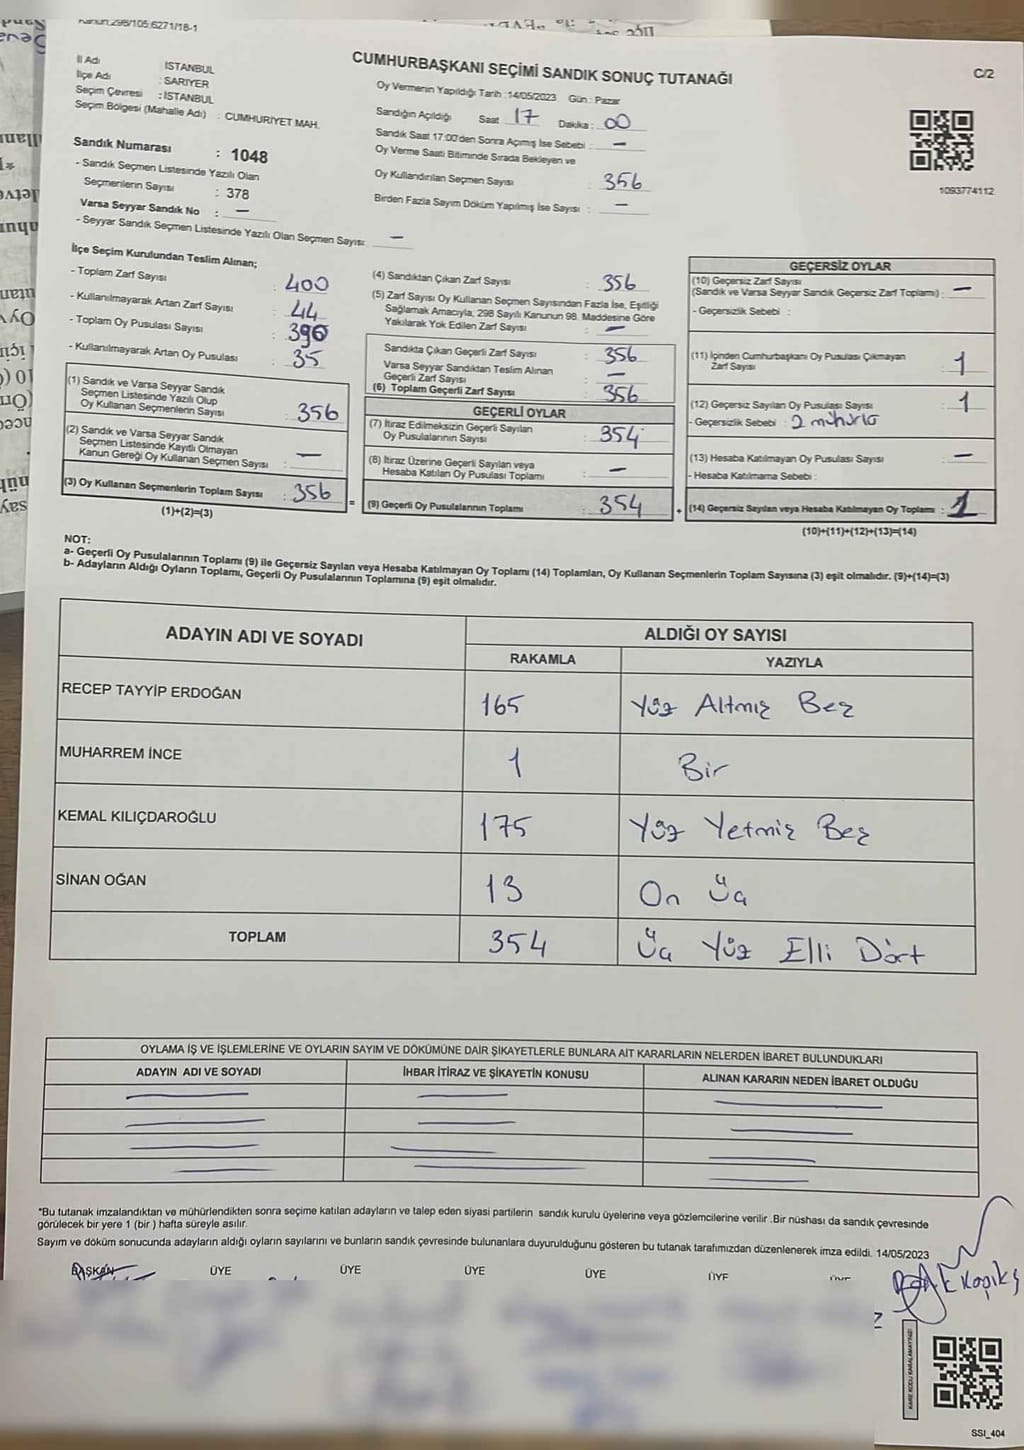 Kanun:298/105;6271/18-1
C/2
CUMHURBAŞKANI SEÇİMİ SANDIK SONUÇ TUTANAĞI
İl Adı İSTANBUL
İlçe Adı : SARIYER
Seçim Çevresi : İSTANBUL
Seçim Bölgesi (Mahalle Adı) : CUMHURİYET MAH.
Sandık Numarası : 1048
- Sandık Seçmen Listesinde Yazılı Olan
Seçmenlerin Sayısı : 378
Varsa Seyyar Sandık No : —
- Seyyar Sandık Seçmen Listesinde Yazılı Olan Seçmen Sayısı: —
Oy Vermenin Yapıldığı Tarih :14/05/2023 Gün : Pazar
Sandığın Açıldığı Saat : 17 Dakika : 00
Sandık Saat 17:00'den Sonra Açımış İse Sebebi : —
Oy Verme Saati Bitiminde Sırada Bekleyen ve
Oy Kullandırılan Seçmen Sayısı : 356
Birden Fazla Sayım Döküm Yapılmış İse Sayısı : —
1093774112
İlçe Seçim Kurulundan Teslim Alınan;
- Toplam Zarf Sayısı : 400
- Kullanılmayarak Artan Zarf Sayısı : 44
- Toplam Oy Pusulası Sayısı : 390
- Kullanılmayarak Artan Oy Pusulası : 35
(1) Sandık ve Varsa Seyyar Sandık
Seçmen Listesinde Yazılı Olup
Oy Kullanan Seçmenlerin Sayısı : 356
(2) Sandık ve Varsa Seyyar Sandık
Seçmen Listesinde Kayıtlı Olmayan
Kanun Gereği Oy Kullanan Seçmen Sayısı : —
(3) Oy Kullanan Seçmenlerin Toplam Sayısı : 356
(1)+(2)=(3)
(4) Sandıktan Çıkan Zarf Sayısı : 356
(5) Zarf Sayısı Oy Kullanan Seçmen Sayısından Fazla İse, Eşitliği
Sağlamak Amacıyla, 298 Sayılı Kanunun 98. Maddesine Göre
Yakılarak Yok Edilen Zarf Sayısı : —
Sandıkta Çıkan Geçerli Zarf Sayısı : 356
Varsa Seyyar Sandıktan Teslim Alınan
Geçerli Zarf Sayısı : —
(6) Toplam Geçerli Zarf Sayısı : 356
GEÇERLİ OYLAR
(7) İtiraz Edilmeksizin Geçerli Sayılan
Oy Pusulalarının Sayısı : 354
(8) İtiraz Üzerine Geçerli Sayılan veya
Hesaba Katılan Oy Pusulası Toplamı : —
= (9) Geçerli Oy Pusulalarının Toplamı : 354
GEÇERSİZ OYLAR
(10) Geçersiz Zarf Sayısı
(Sandık ve Varsa Seyyar Sandık Geçersiz Zarf Toplamı) : —
- Geçersizlik Sebebi :
(11) İçinden Cumhurbaşkanı Oy Pusulası Çıkmayan
Zarf Sayısı : 1
(12) Geçersiz Sayılan Oy Pusulası Sayısı : 1
- Geçersizlik Sebebi : 2 mühürlü
(13) Hesaba Katılmayan Oy Pusulası Sayısı : —
- Hesaba Katılmama Sebebi :
+ (14) Geçersiz Sayılan veya Hesaba Katılmayan Oy Toplamı : 1
(10)+(11)+(12)+(13)=(14)
NOT:
a- Geçerli Oy Pusulalarının Toplamı (9) ile Geçersiz Sayılan veya Hesaba Katılmayan Oy Toplamı (14) Toplamları, Oy Kullanan Seçmenlerin Toplam Sayısına (3) eşit olmalıdır. (9)+(14)=(3)
b- Adayların Aldığı Oyların Toplamı, Geçerli Oy Pusulalarının Toplamına (9) eşit olmalıdır.
ADAYIN ADI VE SOYADI ALDIĞI OY SAYISI
RAKAMLA YAZIYLA
RECEP TAYYİP ERDOĞAN 165 Yüz Altmış Beş
MUHARREM İNCE 1 Bir
KEMAL KILIÇDAROĞLU 175 Yüz Yetmiş Beş
SİNAN OĞAN 13 On Üç
TOPLAM 354 Üç Yüz Elli Dört
OYLAMA İŞ VE İŞLEMLERİNE VE OYLARIN SAYIM VE DÖKÜMÜNE DAİR ŞİKAYETLERLE BUNLARA AİT KARARLARIN NELERDEN İBARET BULUNDUKLARI
ADAYIN ADI VE SOYADI İHBAR İTİRAZ VE ŞİKAYETİN KONUSU ALINAN KARARIN NEDEN İBARET OLDUĞU
*Bu tutanak imzalandıktan ve mühürlendikten sonra seçime katılan adayların ve talep eden siyasi partilerin sandık kurulu üyelerine veya gözlemcilerine verilir .Bir nüshası da sandık çevresinde
görülecek bir yere 1 (bir ) hafta süreyle asılır.
Sayım ve döküm sonucunda adayların aldığı oyların sayılarını ve bunların sandık çevresinde bulunanlara duyurulduğunu gösteren bu tutanak tarafımızdan düzenlenerek imza edildi. 14/05/2023
BAŞKAN ÜYE ÜYE ÜYE ÜYE ÜYE ÜYE
KARE KODU KARALAMAYINIZ!
SSI_404